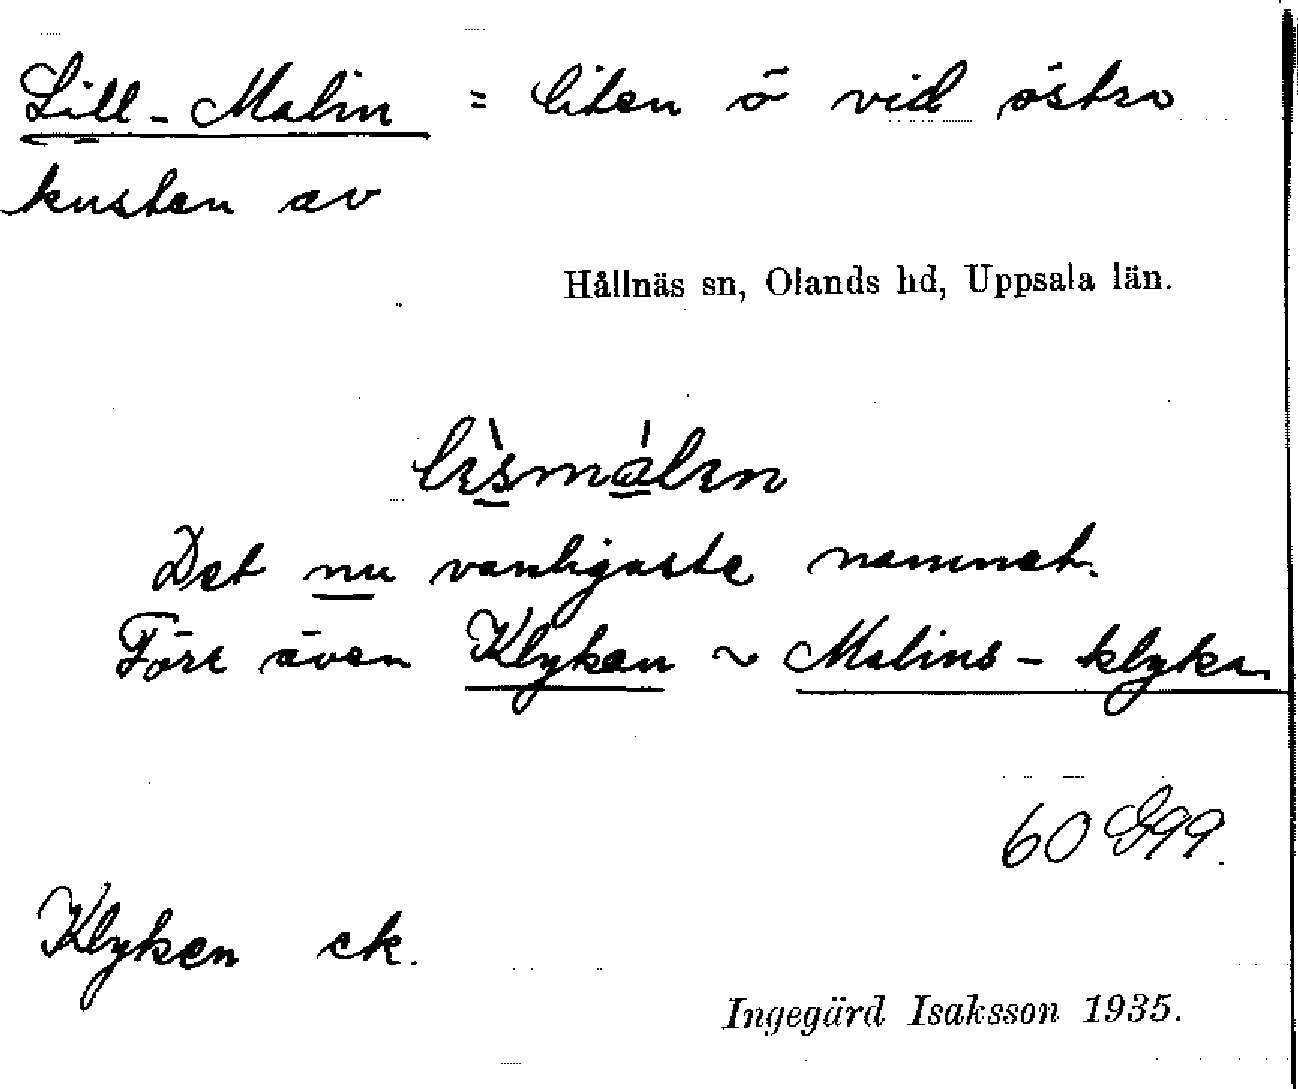 Lill-Malin = liten ö vid östra
kusten av
Hållnäs sn, Olands hd, Uppsala län.
Det nu vanligaste namnet.
Förr även Klykan ~ Malins-klykan
60 G99.
Klyken ek.
Ingegärd Isaksson 1935.